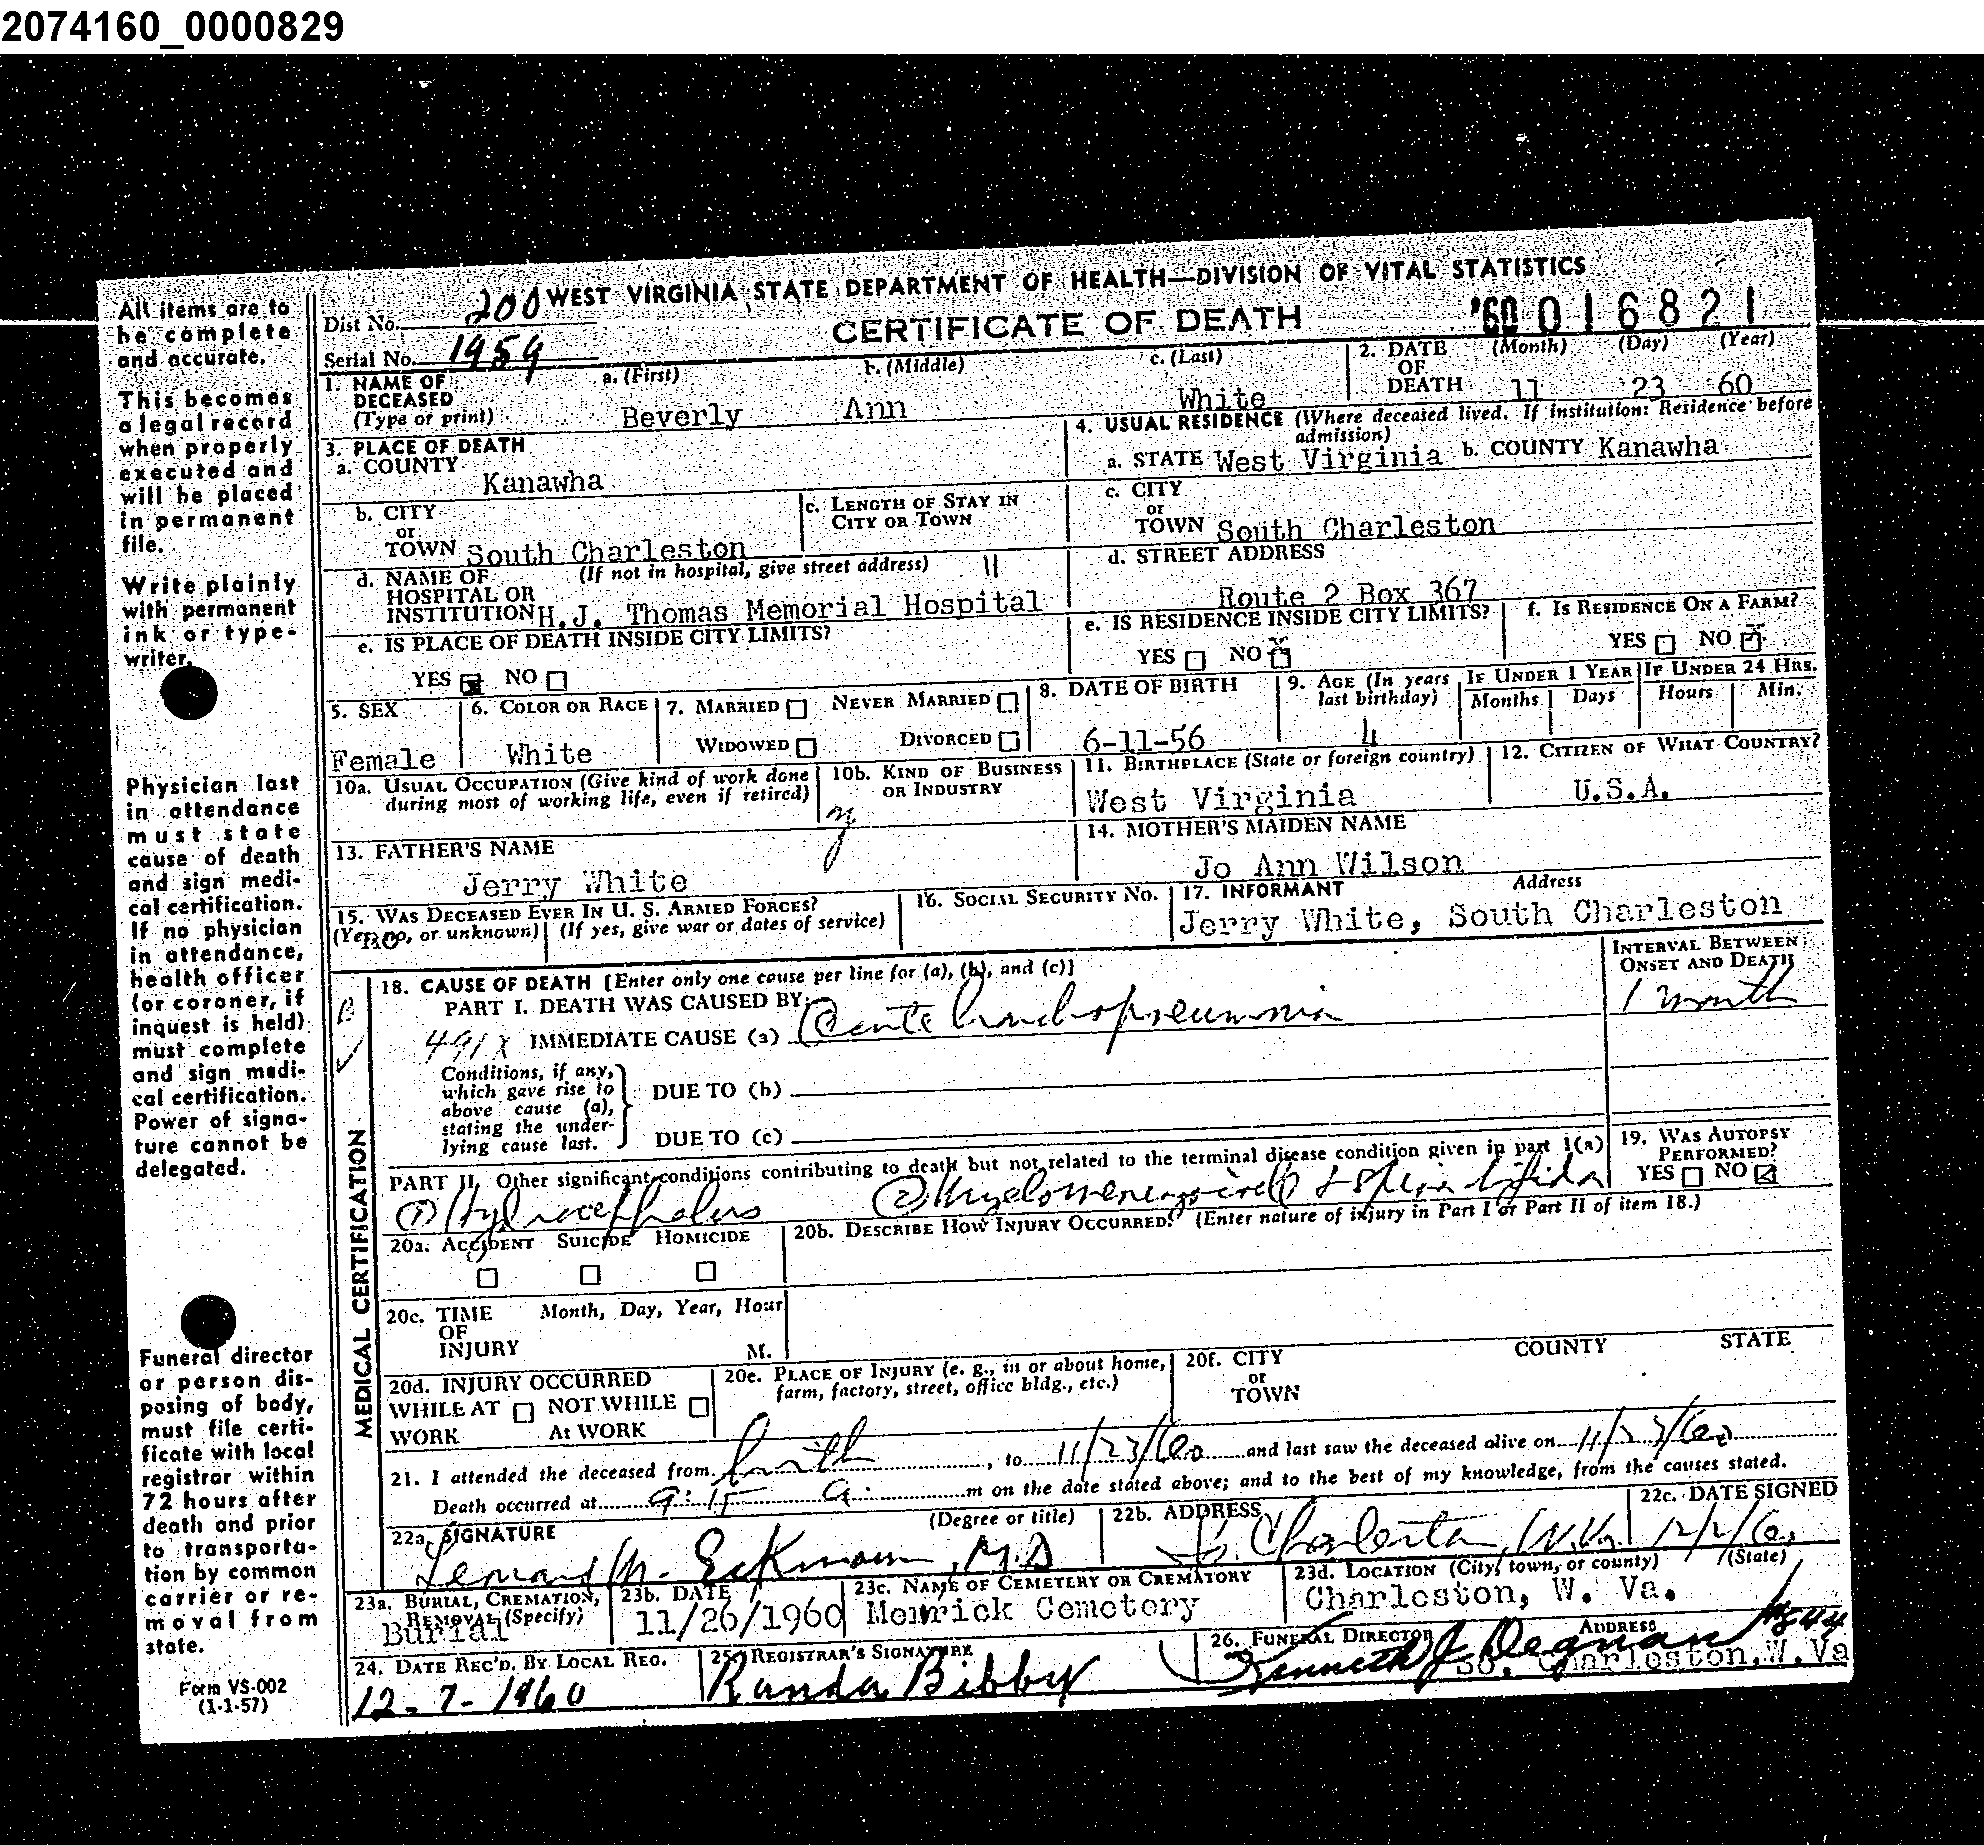 2074160_0000829
WEST VIRGINIA STATE DEPARTMENT OF HEALTH—DIVISION OF VITAL STATISTICS
CERTIFICATE OF DEATH
'60 016821
Dist No. 200
Serial No. 1959
1. NAME OF DECEASED (Type or print) a. (First) b. (Middle) c. (Last)
Beverly Ann White
2. DATE OF DEATH (Month) (Day) (Year)
11 23 60
3. PLACE OF DEATH
a. COUNTY Kanawha
b. CITY or TOWN South Charleston
c. LENGTH OF STAY IN CITY OR TOWN
d. NAME OF HOSPITAL OR INSTITUTION (If not in hospital, give street address)
H.J. Thomas Memorial Hospital
e. IS PLACE OF DEATH INSIDE CITY LIMITS?
YES ☒ NO ☐
4. USUAL RESIDENCE (Where deceased lived. If institution: Residence before admission)
a. STATE West Virginia b. COUNTY Kanawha
c. CITY or TOWN South Charleston
d. STREET ADDRESS
Route 2 Box 367
e. IS RESIDENCE INSIDE CITY LIMITS?
YES ☐ NO ☒
f. IS RESIDENCE ON A FARM?
YES ☐ NO ☒
5. SEX Female
6. COLOR OR RACE White
7. MARRIED ☐ NEVER MARRIED ☐
WIDOWED ☐ DIVORCED ☐
8. DATE OF BIRTH 6-11-56
9. AGE (In years last birthday) 4
IF UNDER 1 YEAR Months Days
IF UNDER 24 HRS. Hours Min.
10a. USUAL OCCUPATION (Give kind of work done during most of working life, even if retired)
10b. KIND OF BUSINESS OR INDUSTRY
11. BIRTHPLACE (State or foreign country)
West Virginia
12. CITIZEN OF WHAT COUNTRY?
U.S.A.
13. FATHER'S NAME
Jerry White
14. MOTHER'S MAIDEN NAME
Jo Ann Wilson
15. WAS DECEASED EVER IN U. S. ARMED FORCES?
(Yes, no, or unknown) (If yes, give war or dates of service)
no
16. SOCIAL SECURITY NO.
17. INFORMANT Address
Jerry White, South Charleston
MEDICAL CERTIFICATION
18. CAUSE OF DEATH [Enter only one cause per line for (a), (b), and (c)]
INTERVAL BETWEEN ONSET AND DEATH
PART I. DEATH WAS CAUSED BY:
491X IMMEDIATE CAUSE (a) Acute bronchopneumonia 1 month
Conditions, if any, which gave rise to above cause (a), stating the underlying cause last.
DUE TO (b)
DUE TO (c)
PART II. Other significant conditions contributing to death but not related to the terminal disease condition given in part I(a)
① Hydrocephalus ② Myelomeningocele & spina bifida
19. WAS AUTOPSY PERFORMED?
YES ☐ NO ☒
20a. ACCIDENT SUICIDE HOMICIDE
20b. DESCRIBE HOW INJURY OCCURRED. (Enter nature of injury in Part I or Part II of item 18.)
20c. TIME OF INJURY Month, Day, Year, Hour M.
20d. INJURY OCCURRED
WHILE AT WORK ☐ NOT WHILE AT WORK ☐
20e. PLACE OF INJURY (e. g., in or about home, farm, factory, street, office bldg., etc.)
20f. CITY or TOWN COUNTY STATE
21. I attended the deceased from birth, to 11/23/60 and last saw the deceased alive on 11/23/60
Death occurred at 9:15 a. m on the date stated above; and to the best of my knowledge, from the causes stated.
22a. SIGNATURE (Degree or title)
Lenard M. Eckmann, M.D
22b. ADDRESS
So. Charleston, W.Va
22c. DATE SIGNED
12/2/60
23a. BURIAL, CREMATION, REMOVAL (Specify)
Burial
23b. DATE
11/26/1960
23c. NAME OF CEMETERY OR CREMATORY
Memrick Cemetery
23d. LOCATION (City, town, or county) (State)
Charleston, W. Va.
24. DATE REC'D. BY LOCAL REG.
12-7-1960
25. REGISTRAR'S SIGNATURE
Randa Bibby
26. FUNERAL DIRECTOR ADDRESS
Kenneth J. Degnan
So. Charleston, W. Va
All items are to be complete and accurate.
This becomes a legal record when properly executed and will be placed in permanent file.
Write plainly with permanent ink or typewriter.
Physician last in attendance must state cause of death and sign medical certification. If no physician in attendance, health officer (or coroner, if inquest is held) must complete and sign medical certification. Power of signature cannot be delegated.
Funeral director or person disposing of body, must file certificate with local registrar within 72 hours after death and prior to transportation by common carrier or removal from state.
Form VS-002
(1-1-57)